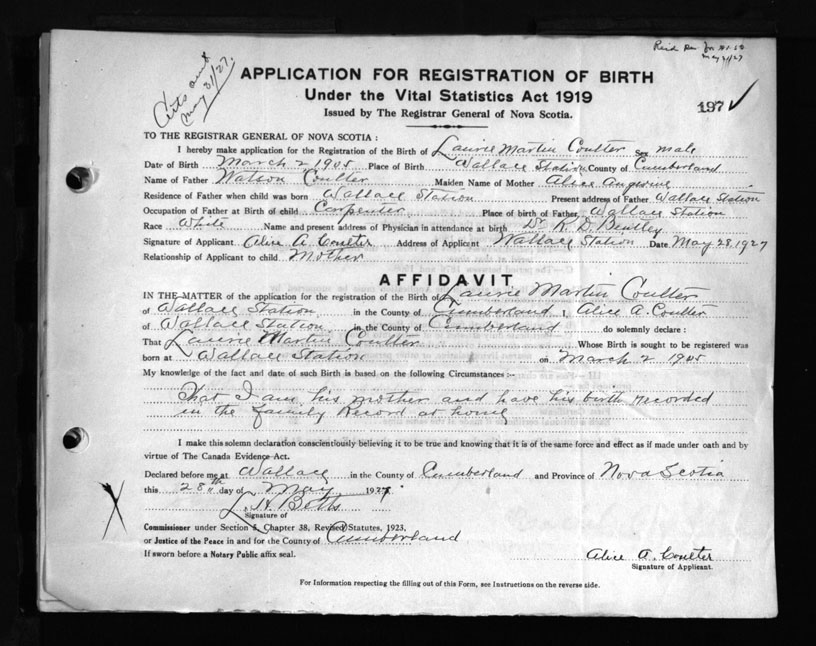 May 31/27.
May 31/27
APPLICATION FOR REGISTRATION OF BIRTH
Under the Vital Statistics Act 1919
Issued by The Registrar General of Nova Scotia.
197 ✓
TO THE REGISTRAR GENERAL OF NOVA SCOTIA :
I hereby make application for the Registration of the Birth of Laurie Martin Coulter Sex male
Date of Birth March 2 1905 Place of Birth Wallace Station County of Cumberland
Name of Father Watson Coulter Maiden Name of Mother Alice
Residence of Father when child was born Wallace Station Present address of Father Wallace Station
Occupation of Father at Birth of child Carpenter Place of birth of Father Wallace Station
Race White Name and present address of Physician in attendance at birth Dr. K. D. Bentley
Signature of Applicant Alice A. Coulter Address of Applicant Wallace Station Date May 28, 1927
Relationship of Applicant to child Mother
AFFIDAVIT
IN THE MATTER of the application for the registration of the Birth of Laurie Martin Coulter
of Wallace Station in the County of Cumberland I, Alice A. Coulter
of Wallace Station in the County of Cumberland do solemnly declare :
That Laurie Martin Coulter Whose Birth is sought to be registered was
born at Wallace Station on March 2 1905
My knowledge of the fact and date of such Birth is based on the following Circumstances :–
That I am his mother and have his birth recorded
in the family Record at home
I make this solemn declaration conscientiously believing it to be true and knowing that it is of the same force and effect as if made under oath and by
virtue of The Canada Evidence Act.
Declared before me at Wallace in the County of Cumberland and Province of Nova Scotia
this 28th day of May 1927.
L. H. Betts
Signature of
Commissioner under Section 5, Chapter 38, Revised Statutes, 1923,
or Justice of the Peace in and for the County of Cumberland
If sworn before a Notary Public affix seal.
Alice A. Coulter
Signature of Applicant.
For Information respecting the filling out of this Form, see Instructions on the reverse side.